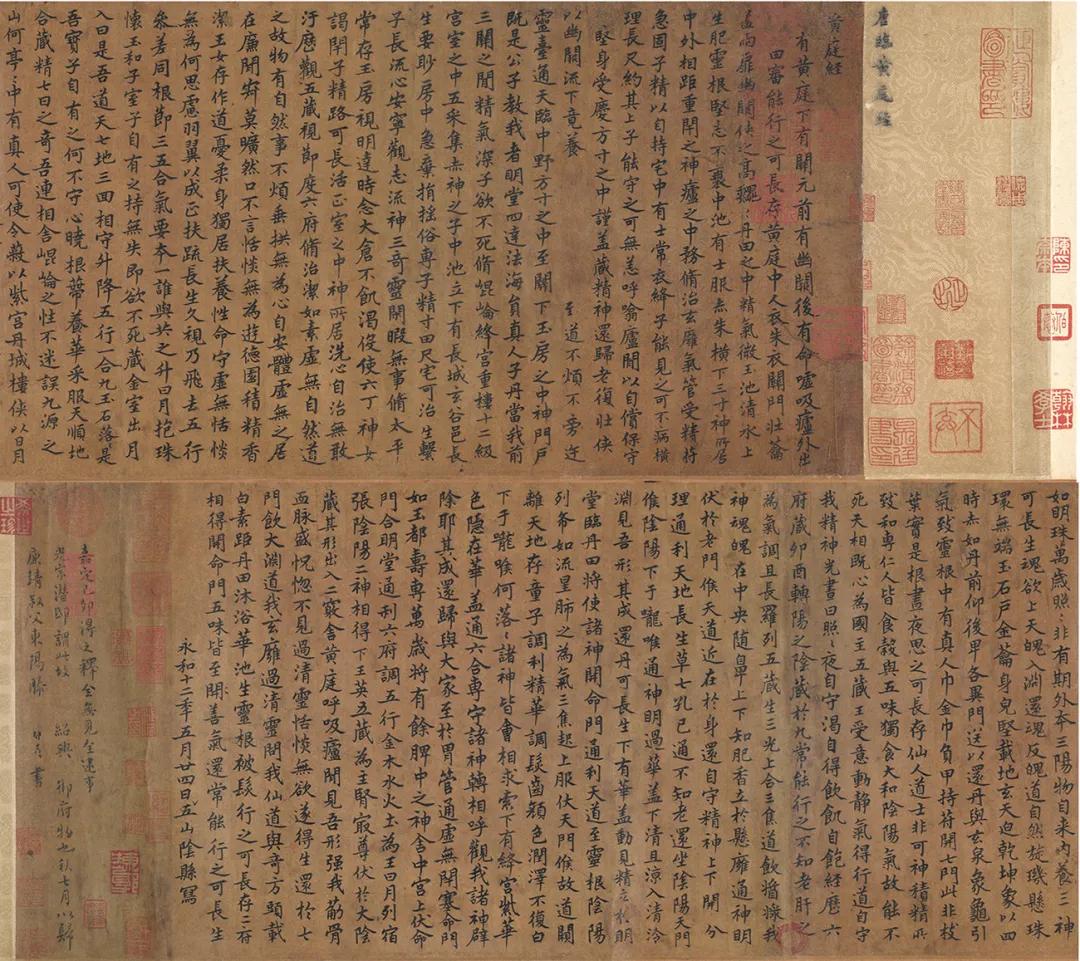 唐臨黃庭經
黃庭經
上有黃庭下有關元前有幽闕後有命噓吸廬外出
入丹田審能行之可長存黃庭中人衣朱衣關門壯籥
蓋兩扉幽關俠之高巍〻丹田之中精氣微玉池清水上
生肥靈根堅志不衰中池有士服赤朱橫下三寸神所居
中外相距重閉之神廬之中務脩治玄雍氣管受精符
急固子精以自持宅中有士常衣絳子能見之可不病橫
理長尺約其上子能守之可無恙呼噏廬間以自償保守
完堅身受慶方寸之中謹蓋藏精神還歸老復壯俠
以幽闕流下竟養 至道不煩不旁迕
靈臺通天臨中野方寸之中至關下玉房之中神門戶
既是公子教我者明堂四達法海員真人子丹當我前
三關之間精氣深子欲不死脩崐崘絳宮重樓十二級
宮室之中五采集赤神之子中池立下有長城玄谷邑長
生要眇房中急棄捐搖俗專子精寸田尺宅可治生繫
子長流心安寧觀志流神三奇靈閑暇無事脩太平
常存玉房視明達時念大倉不飢渴役使六丁神女
謁閉子精路可長活正室之中神所居洗心自治無敢
汙歷觀五藏視節度六府脩治潔如素虛無自然道
之故物有自然事不煩垂拱無為心自安體虛無之居
在廉間寂莫曠然口不言恬惔無為遊德園積精香
潔玉女存作道憂柔身獨居扶養性命守虛無恬惔
無為何思慮羽翼以成正扶疏長生久視乃飛去五行
參差同根節三五合氣要本一誰與共之升日月抱珠
懷玉和子室子自有之持無失即欲不死藏金室出月
入日是吾道天七地三回相守升降五行一合九玉石落〻是
吾寶子自有之何不守心曉根蔕養華采服天順地
合藏精七日之奇吾連相合崐崘之性不迷誤九源之
山何亭〻中有真人可使令蔽以紫宮丹城樓俠以日月
如明珠萬歲照〻非有期外本三陽物自來內養三神
可長生魂欲上天魄入淵還魂反魄道自然旋璣懸珠
環無端玉石戶金籥身兒堅載地玄天迫乾坤象以四
時赤如丹前仰後卑各異門送以還丹與玄泉象龜引
氣致靈根中有真人巾金巾負甲持符開七門此非枝
葉實是根晝夜思之可長存仙人道士非可神積精所
致和專仁人皆食穀與五味獨食大和陰陽氣故能不
死天相既心為國主五藏王受意動靜氣得行道自守
我精神光晝日照〻夜自守渴自得飲飢自飽經歷六
府藏卯酉轉陽之陰藏於九常能行之不知老肝之
為氣調且長羅列五藏生三光上合三焦道飲醬漿我
神魂魄在中央隨鼻上下知肥香立於懸雍通神明
伏於老門候天道近在於身還自守精神上下開分
理通利天地長生草七孔已通不知老還坐陰陽天門
候陰陽下于嚨喉通神明過華蓋下清且涼入清泠
淵見吾形其成還丹可長生下有華蓋動見精立於明
堂臨丹田將使諸神開命門通利天道至靈根陰陽
列布如流星肺之為氣三焦起上服伏天門候故道闚
離天地存童子調利精華調髮齒顏色潤澤不復白
下于嚨喉何落〻諸神皆會相求索下有絳宮紫華
色隱在華蓋通六合專守諸神轉相呼觀我諸神辟
除耶其成還歸與大家至於胃管通虛無閉塞命門
如玉都壽專萬歲將有餘脾中之神舍中宮上伏命
門合明堂通利六府調五行金木水火土為王日月列宿
張陰陽二神相得下玉英五藏為主腎最尊伏於大陰
藏其形出入二竅舍黃庭呼吸廬間見吾形強我筋骨
血脉盛怳惚不見過清靈恬惔無欲遂得生還於七
門飲大淵道我玄雍過清靈問我仙道與奇方頭載
白素距丹田沐浴華池生靈根被髮行之可長存二府
相得開命門五味皆至開善氣還常能行之可長生
永和十二年五月廿四日五山陰縣寫